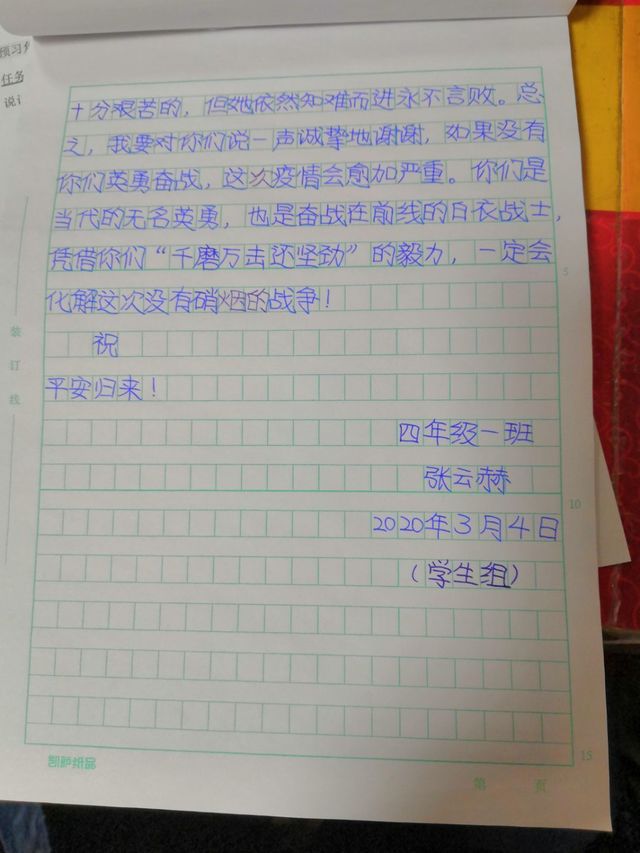 预习
任务
说
十分艰苦的，但她依然知难而进永不言败。总
之，我要对你们说一声诚挚地谢谢，如果没有
你们英勇奋战，这次疫情会愈加严重。你们是
当代的无名英勇，也是奋战在前线的白衣战士，
凭借你们“千磨万击还坚劲”的毅力，一定会
化解这次没有硝烟的战争！
祝
平安归来！
四年级一班
张云赫
2020年3月4日
（学生组）
装订线
5
10
15
凯萨纸品
第 页